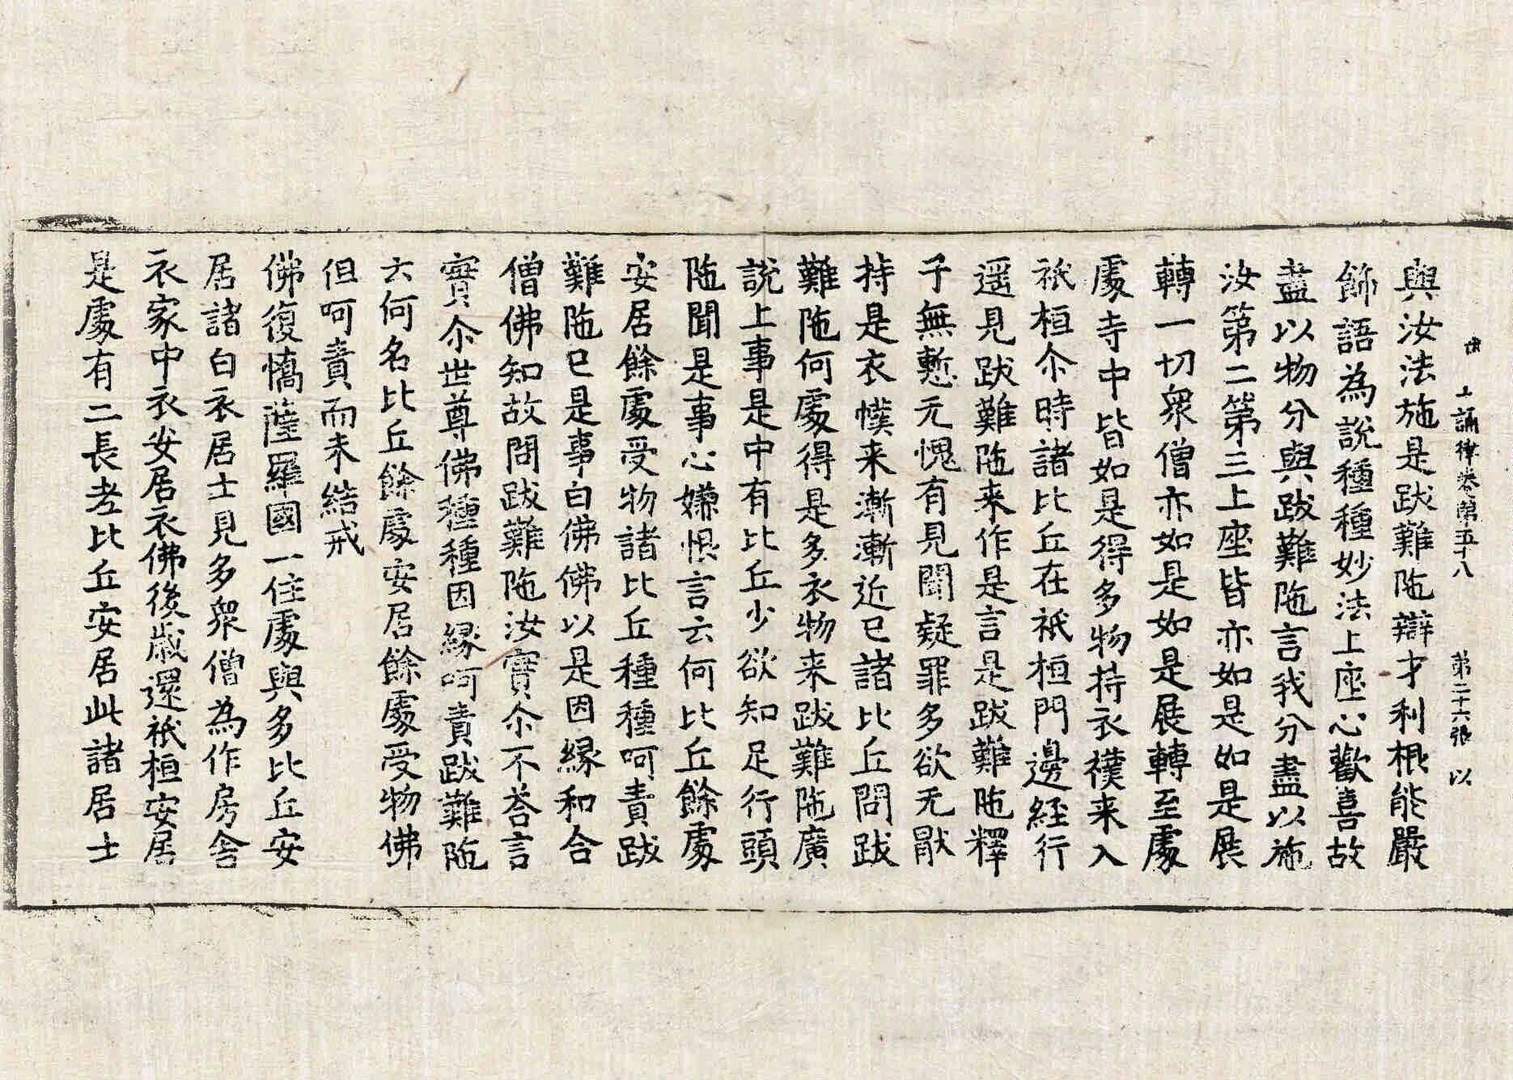 十誦律卷第五十八 第二十六張 以
與汝法施是跋難陁辯才利根能嚴
飾語為說種種妙法上座心歡喜故
盡以物分與跋難陁言我分盡以施
汝第二第三上座皆亦如是如是展
轉一切衆僧亦如是如是展轉至處
處寺中皆如是得多物持衣襆来入
祇桓尒時諸比丘在祇桓門邊經行
遥見跋難陁来作是言是跋難陁釋
子無慙无愧有見聞疑罪多欲无猒
持是衣襆来漸漸近已諸比丘問跋
難陁何處得是多衣物来跋難陁廣
說上事是中有比丘少欲知足行頭
陁聞是事心嫌恨言云何比丘餘處
安居餘處受物諸比丘種種呵責跋
難陁已是事白佛佛以是因緣和合
僧佛知故問跋難陁汝實尒不荅言
實尒世尊佛種種因緣呵責跋難陁
云何名比丘餘處安居餘處受物佛
但呵責而未結戒
佛復憍薩羅國一住處與多比丘安
居諸白衣居士見多衆僧為作房舍
衣家中衣安居衣佛後歲還祇桓安居
是處有二長老比丘安居此諸居士